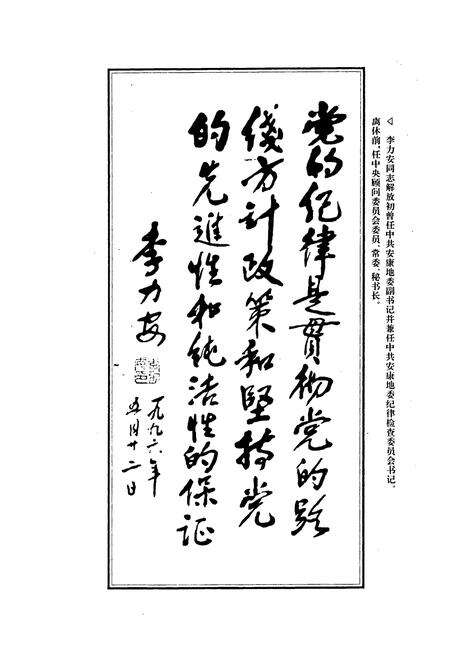 ◁ 李力安同志解放初曾任中共安康地委副书记并兼任中共安康地委纪律检查委员会书记。
离休前,任中央顾问委员会委员、常委、秘书长。
党的纪律是贯彻党的路
线方针政策和坚持党
的先進性和纯洁性的保证
李力安
一九九六年
五月廿二日